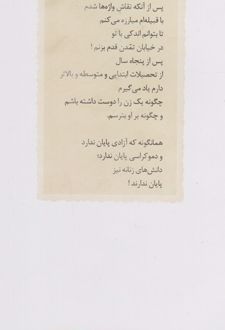 پس از آنکه نقاش واژه‌ها شدم
با قبیله‌ام مبارزه می‌کنم
تا بتوانم اندکی با تو
در خیابان تمدّن قدم بزنم !
پس از پنجاه سال
از تحصیلات ابتدایی و متوسطه و بالاتر
دارم یاد می‌گیرم
چگونه یک زن را دوست داشته باشم
و چگونه بر او بنرسم.
همانگونه که آزادی پایان ندارد
و دموکراسی پایان ندارد؛
دانش‌های زنانه نیز
پایان ندارند !